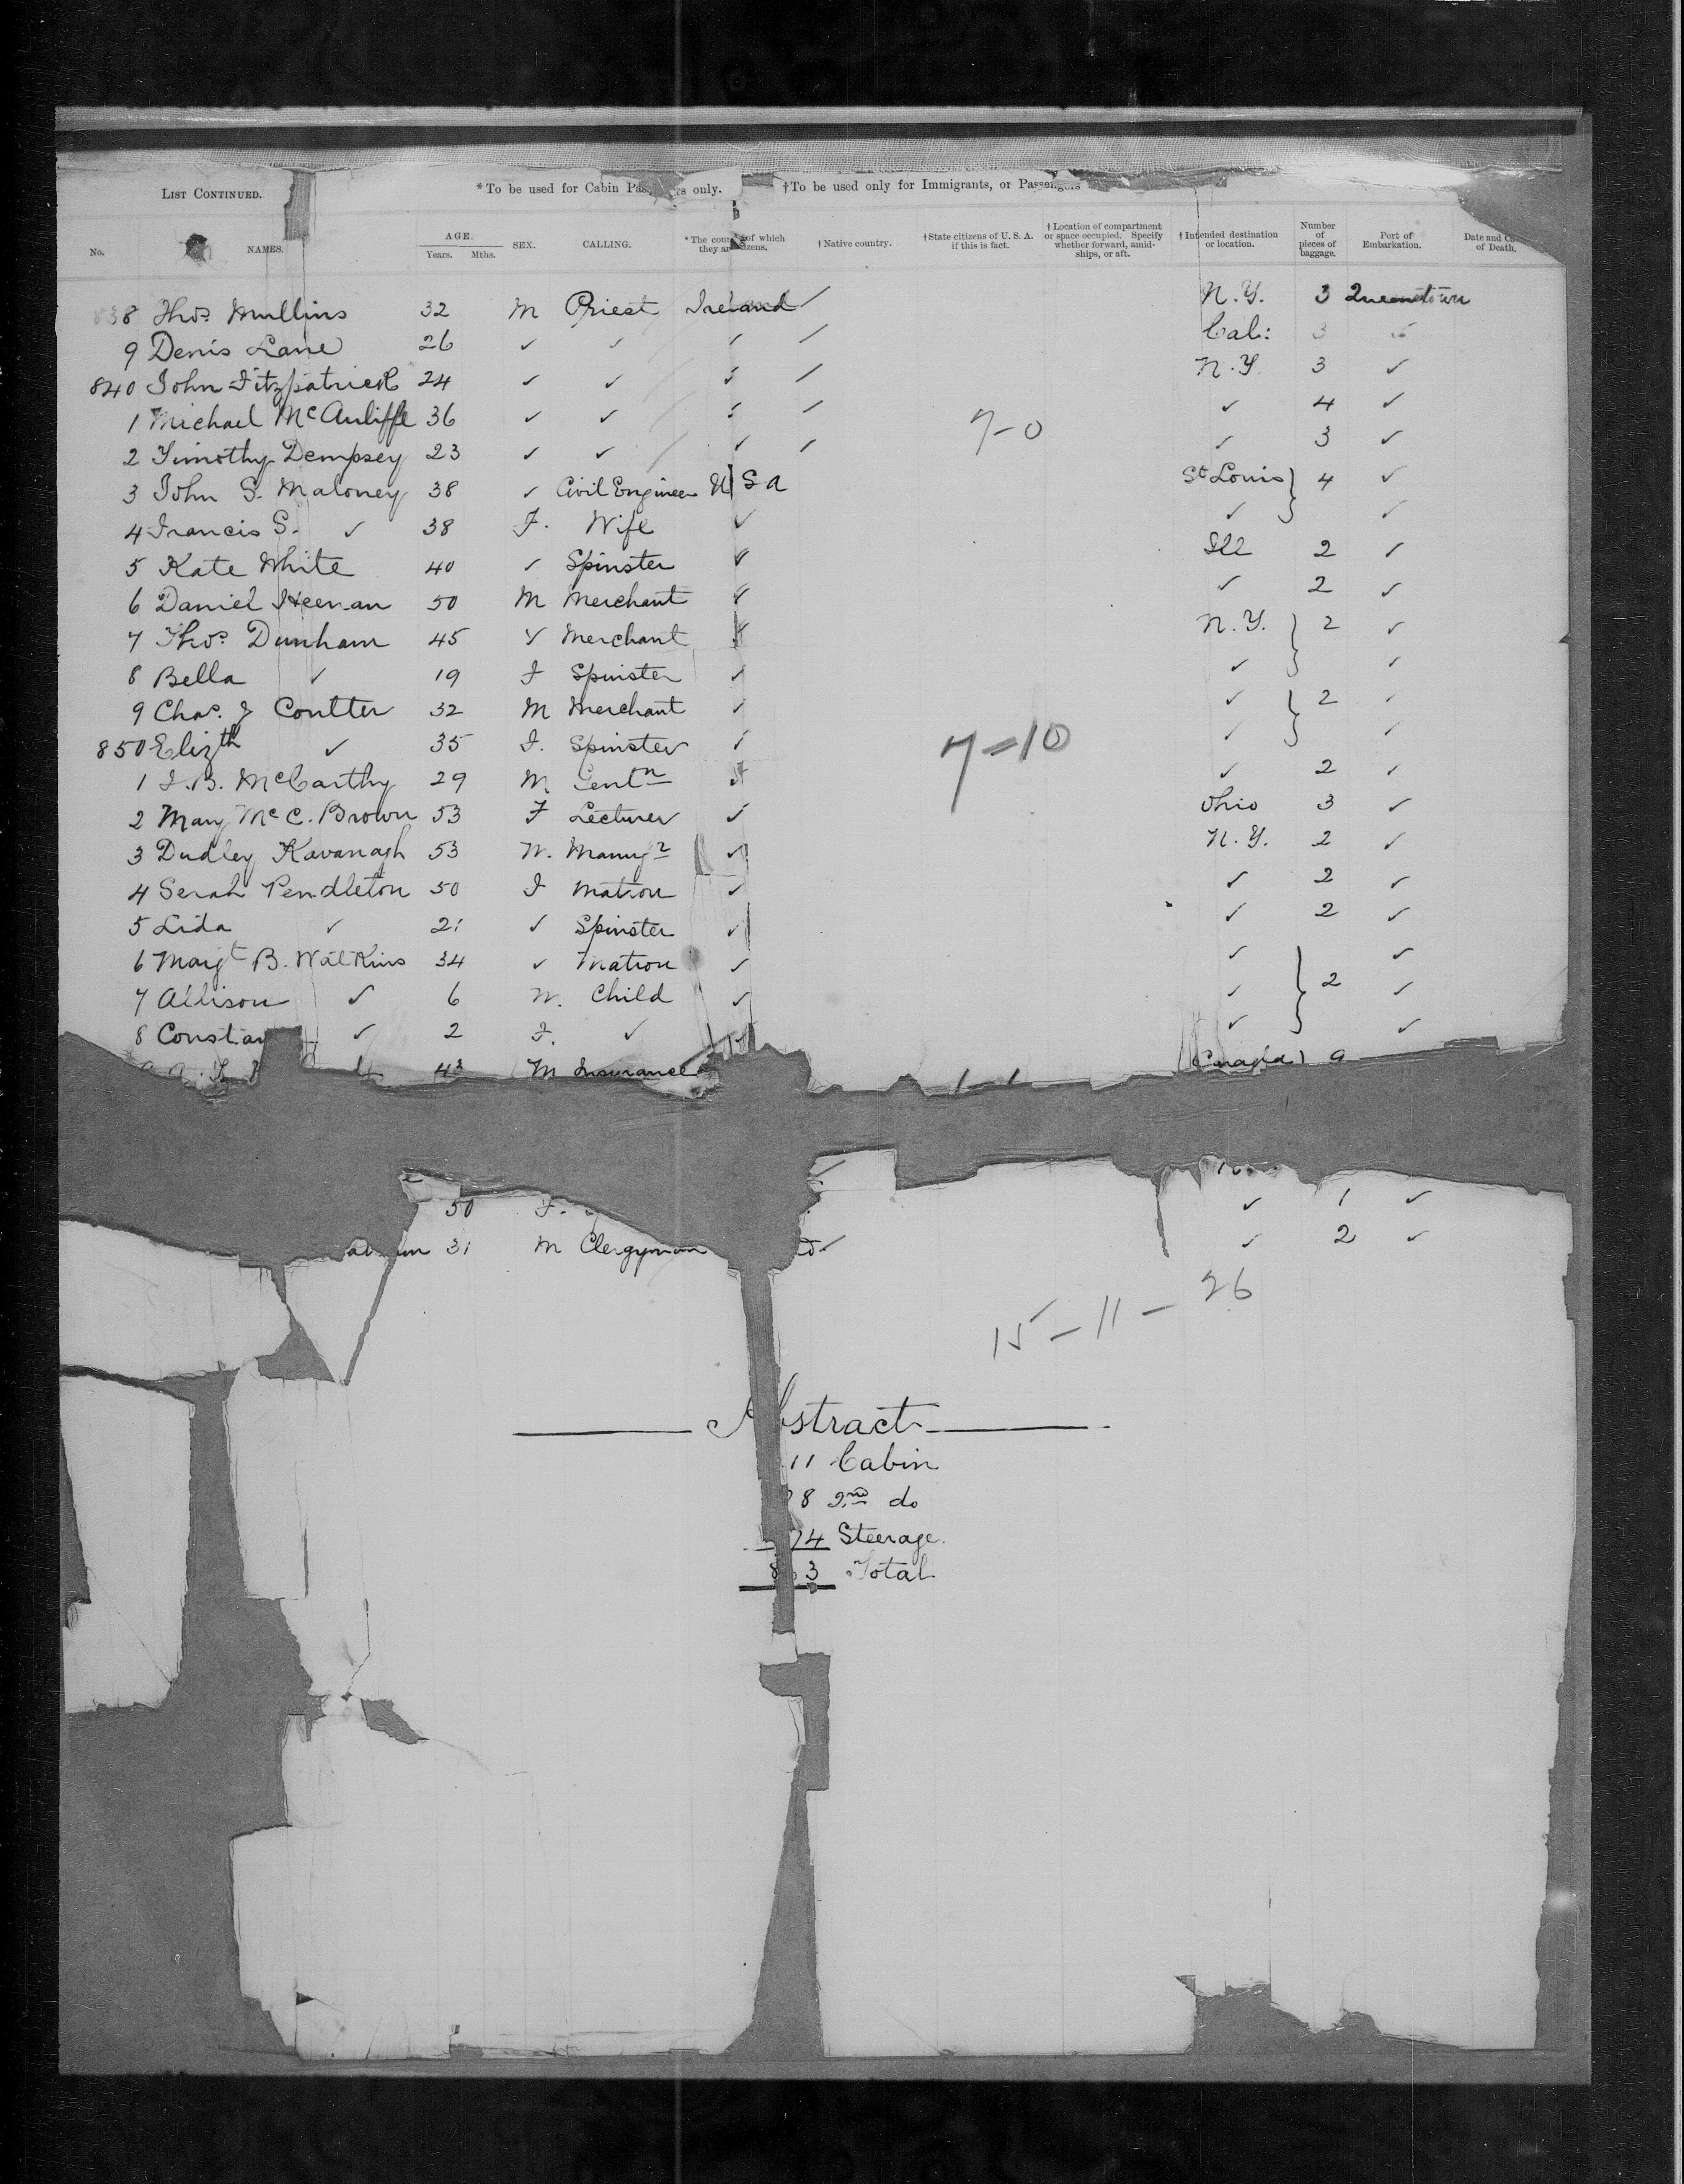 LIST CONTINUED. *To be used for Cabin only. †To be used only for Immigrants, or Passengers
No. NAMES. AGE. Years. Mths. SEX. CALLING. *The of which they †Native country. †State citizens of U. S. A. if this is fact. †Location of compartment or space occupied. Specify whether forward, amidships, or aft. †Intended destination or location. Number of pieces of baggage. Port of Embarkation. Date and of Death.
838 Thos. Mullins 32 M Priest Ireland / N.Y. 3 Queenstown
9 Denis Lane 26 ✓ ✓ ✓ / Cal: 3 ✓
840 John Fitzpatrick 24 ✓ ✓ ✓ / N.Y 3 ✓
1 Michael McAuliffe 36 ✓ ✓ ✓ / ✓ 4 ✓
7-0
2 Timothy Dempsey 23 ✓ ✓ ✓ / ✓ 3 ✓
3 John S. Maloney 38 ✓ Civil Engineer U S A St Louis } 4 ✓
4 Francis S. ✓ 38 F. Wife ✓ ✓ ✓
5 Kate White 40 ✓ Spinster ✓ Ill 2 ✓
6 Daniel Heenan 50 M Merchant ✓ ✓ 2 ✓
7 Thos. Dunham 45 ✓ Merchant ✓ N.Y. } 2 ✓
8 Bella ✓ 19 F Spinster ✓ ✓ ✓
9 Chas. J Coutter 32 M Merchant ✓ ✓ } 2 ✓
850 Elizth ✓ 35 F. Spinster ✓ ✓ ✓
7-10
1 J.B. McCarthy 29 M. Gentn ✓ ✓ 2 ✓
2 Mary McC. Brown 53 F Lecturer ✓ Ohio 3 ✓
3 Dudley Kavanagh 53 M. Manufr ✓ N.Y. 2 ✓
4 Serah Pendleton 50 F Matron ✓ ✓ 2 ✓
5 Lida ✓ 21 ✓ Spinster ✓ ✓ 2 ✓
6 Margt B. Watkins 34 ✓ Matron ✓ ✓ ✓
7 Allison ✓ 6 M. Child ✓ ✓ } 2 ✓
8 Constan ✓ 2 F. ✓ ✓ ✓ ✓
43 M Insurance Canada } 9
50 F. ✓ 1 ✓
31 M Clergyman ✓ ✓ 2 ✓
15-11-26
Abstract
11 Cabin
8 2nd do
74 Steerage
8 3 Total